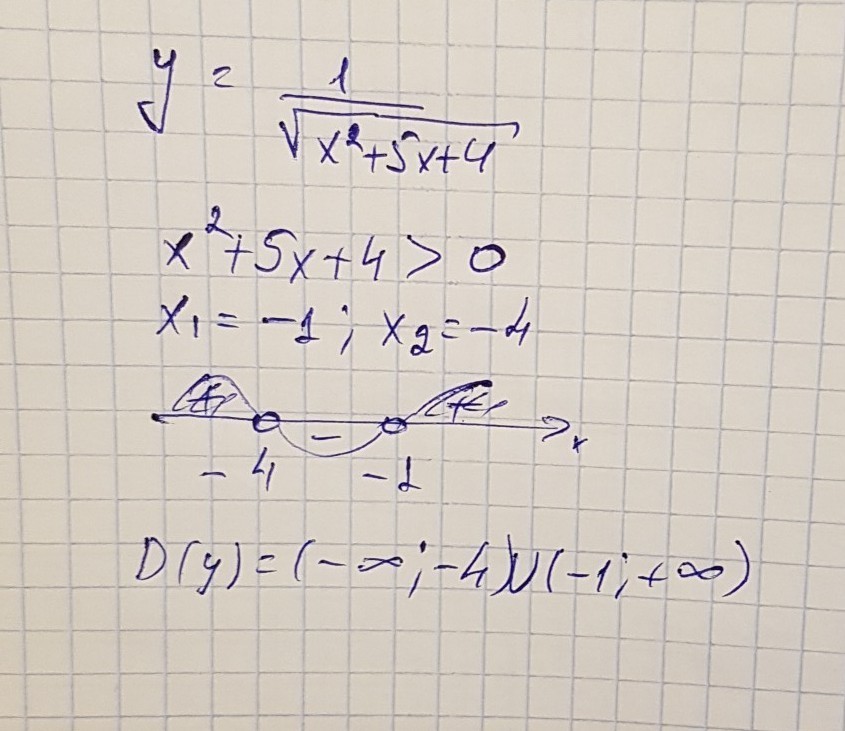 y = 1/√(x²+5x+4)
x²+5x+4 > 0
x₁ = -1; x₂ = -4
+ - + x
-4 -1
D(y) = (-∞; -4)∪(-1; +∞)